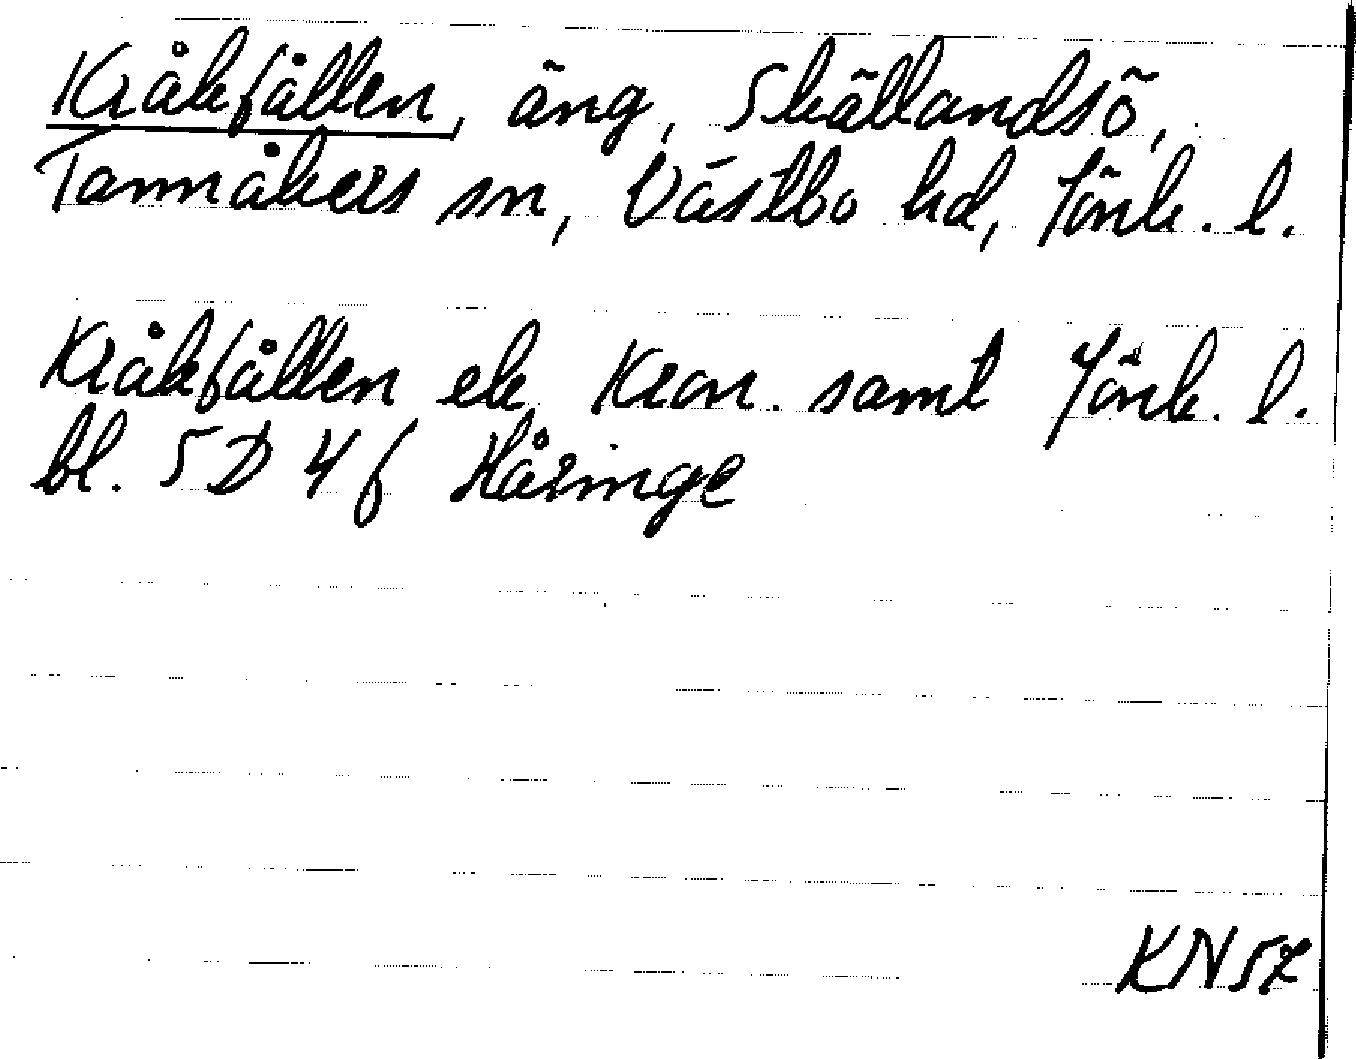 Kråkfållen, äng, Skällandsö,
Tannåkers sn, Västbo hd, Jönk. l.
Kråkfållen ek. Kron. samt Jönk. l.
bl. 5D 4f Håringe
KN57